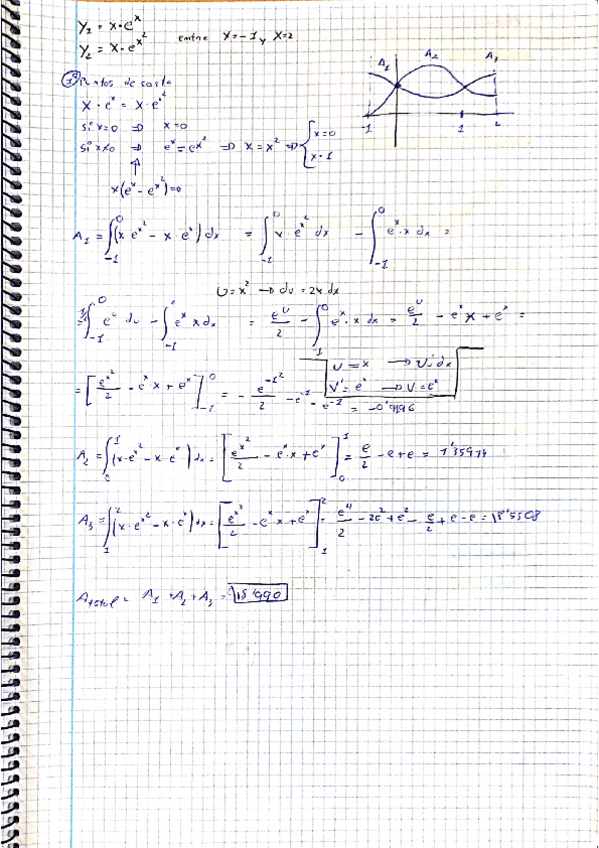 y₁ = x·eˣ
y₂ = x·e^x² entre x=-1 y x=2
A₁ A₂ A₃
-1 1 2
1º Puntos de corte
x·eˣ = x·e^x²
si x=0 ⇒ x=0
si x≠0 ⇒ eˣ = e^x² ⇒ x = x² ⇒ { x=0
x=1
x(eˣ - e^x²)=0
A₁ = ∫₋₁⁰ (x e^x² - x eˣ) dx = ∫₋₁⁰ x·e^x² dx - ∫₋₁⁰ eˣ·x dx =
U = x² → du = 2x dx
∫₋₁⁰ eᵘ du - ∫₋₁⁰ eˣ x dx = eᵘ/2 - ∫₋₁⁰ eˣ·x dx = eᵘ/2 - eˣx + eˣ =
U = x → U' dx
V' = eˣ → V = eˣ
= [e^x²/2 - eˣx + eˣ]₋₁⁰ = - e^-1²/2 - e⁻¹ - e⁻¹ = -0'9196
A₂ = ∫₀¹ (x·e^x² - x·eˣ) dx = [e^x²/2 - eˣ·x + eˣ]₀¹ = e/2 - e + e = 1'35914
A₃ = ∫₁² (x·e^x² - x·eˣ) dx = [e^x²/2 - eˣ x + eˣ]₁² = e⁴/2 - 2e² + e² - e/2 + e - e =
A total = A₁ + A₂ + A₃ =